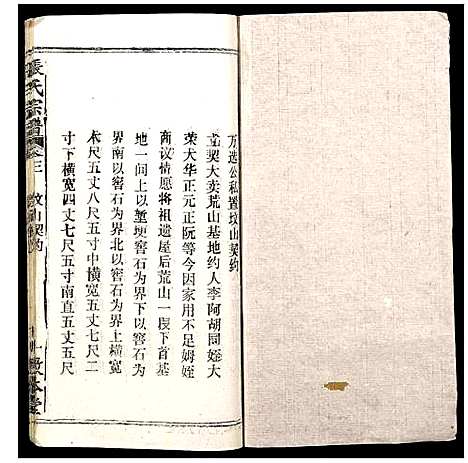 万选公私置坟山契约
立契大卖荒山基地约人李阿胡同姪大
荣大华正元正阮等今因家用不足婶姪
商议情愿将祖遗屋后荒山一段下首基
地一问上以堑埂窖石为界下以窖石为
界南以窖石为界北以窖石为界上横宽
木尺五丈八尺五寸中横宽五丈七尺二
寸下横宽四丈七尺五寸南直五丈五尺
張氏宗譜
卷三
坟山契约